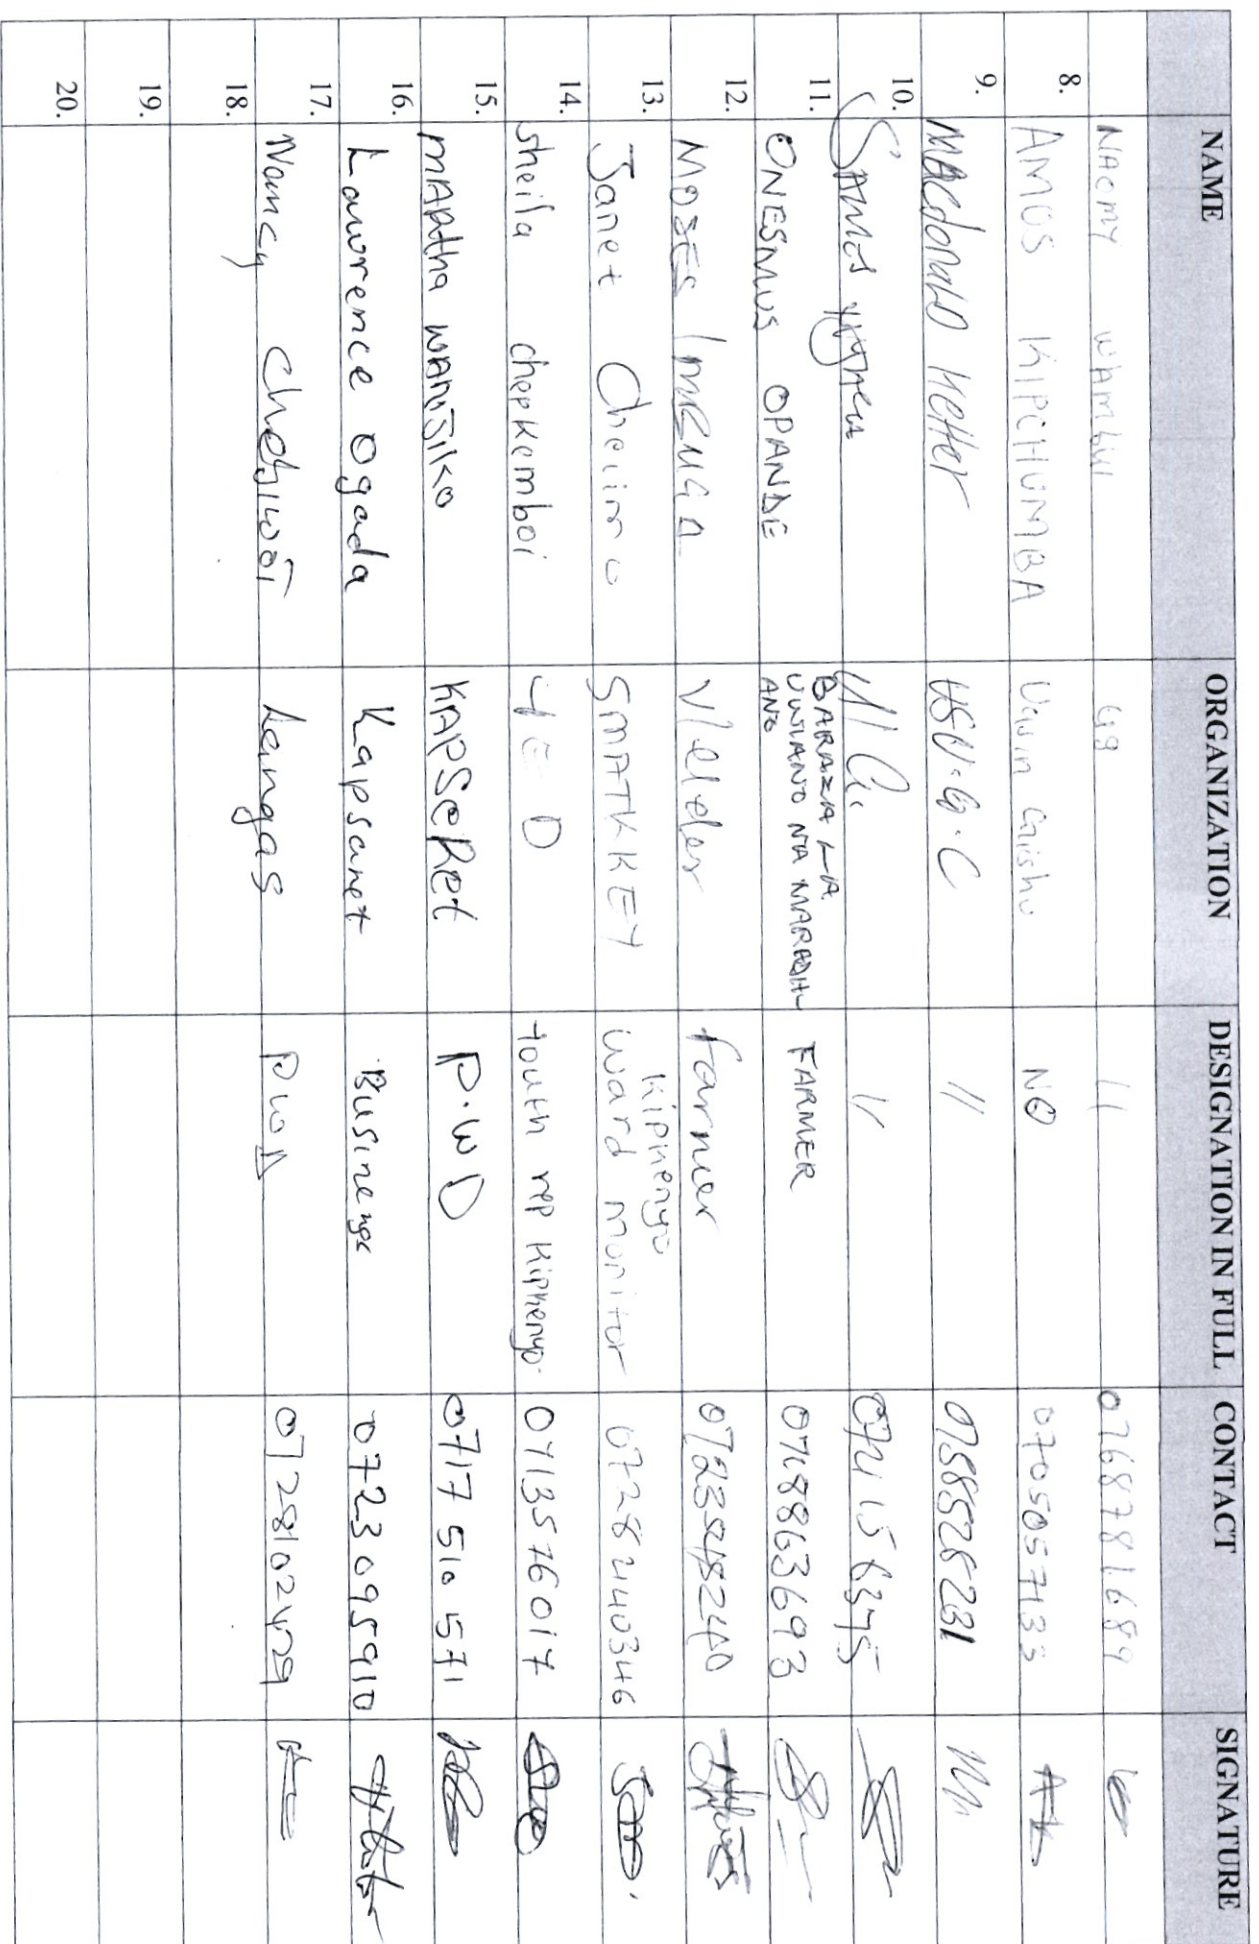 NAME ORGANIZATION DESIGNATION IN FULL CONTACT SIGNATURE
NAOMY WAMBUI 11 0768781689
8. AMOS KIPCHUMBA Uasin Gishu NO 0705057133
9. MACdonalD Ketter USU.G.C 11 0758528231
10. 11
11. ONESMUS OPANDE BARAZA LA
UWIANO NA MARIDHI
ANO FARMER 0768863693
12. MOSES Vl elder farmer
13. Janet SMATKKEY Kipkenyo
ward monitor 0728440346
14. Sheila chepkemboi Youth rep Kipkenyo. 0713576017
15. MARtha WANJIKO KAPSeRet P.W D 0717 510 571
16. Lawrence Ogada Kapsaret 0723095910
17. Nancy Chebiwot Langas PWD 0728102429
18.
19.
20.